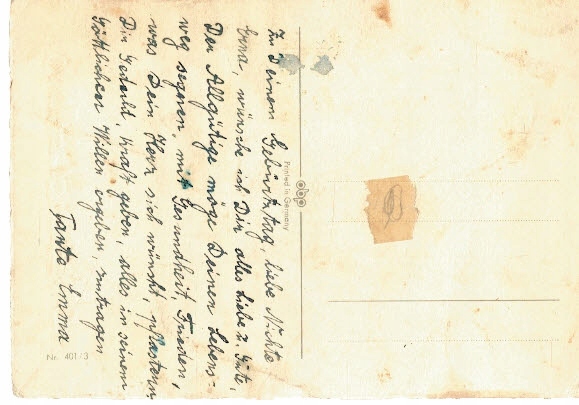 Zu Deinem Geburtstag, liebe Nichte
Erna, wünsche ich Dir alles liebe u. Gute,
Der Allgütige möge Deinen Lebens-
weg segnen, mit Gesundheit, Frieden,
was Dein Herz sich wünscht,
Dir Geduld, Kraft geben, alles in seinem
Göttlichen Willen ergeben, zutragen
Tante Emma
Printed in Germany
Nr. 401/3